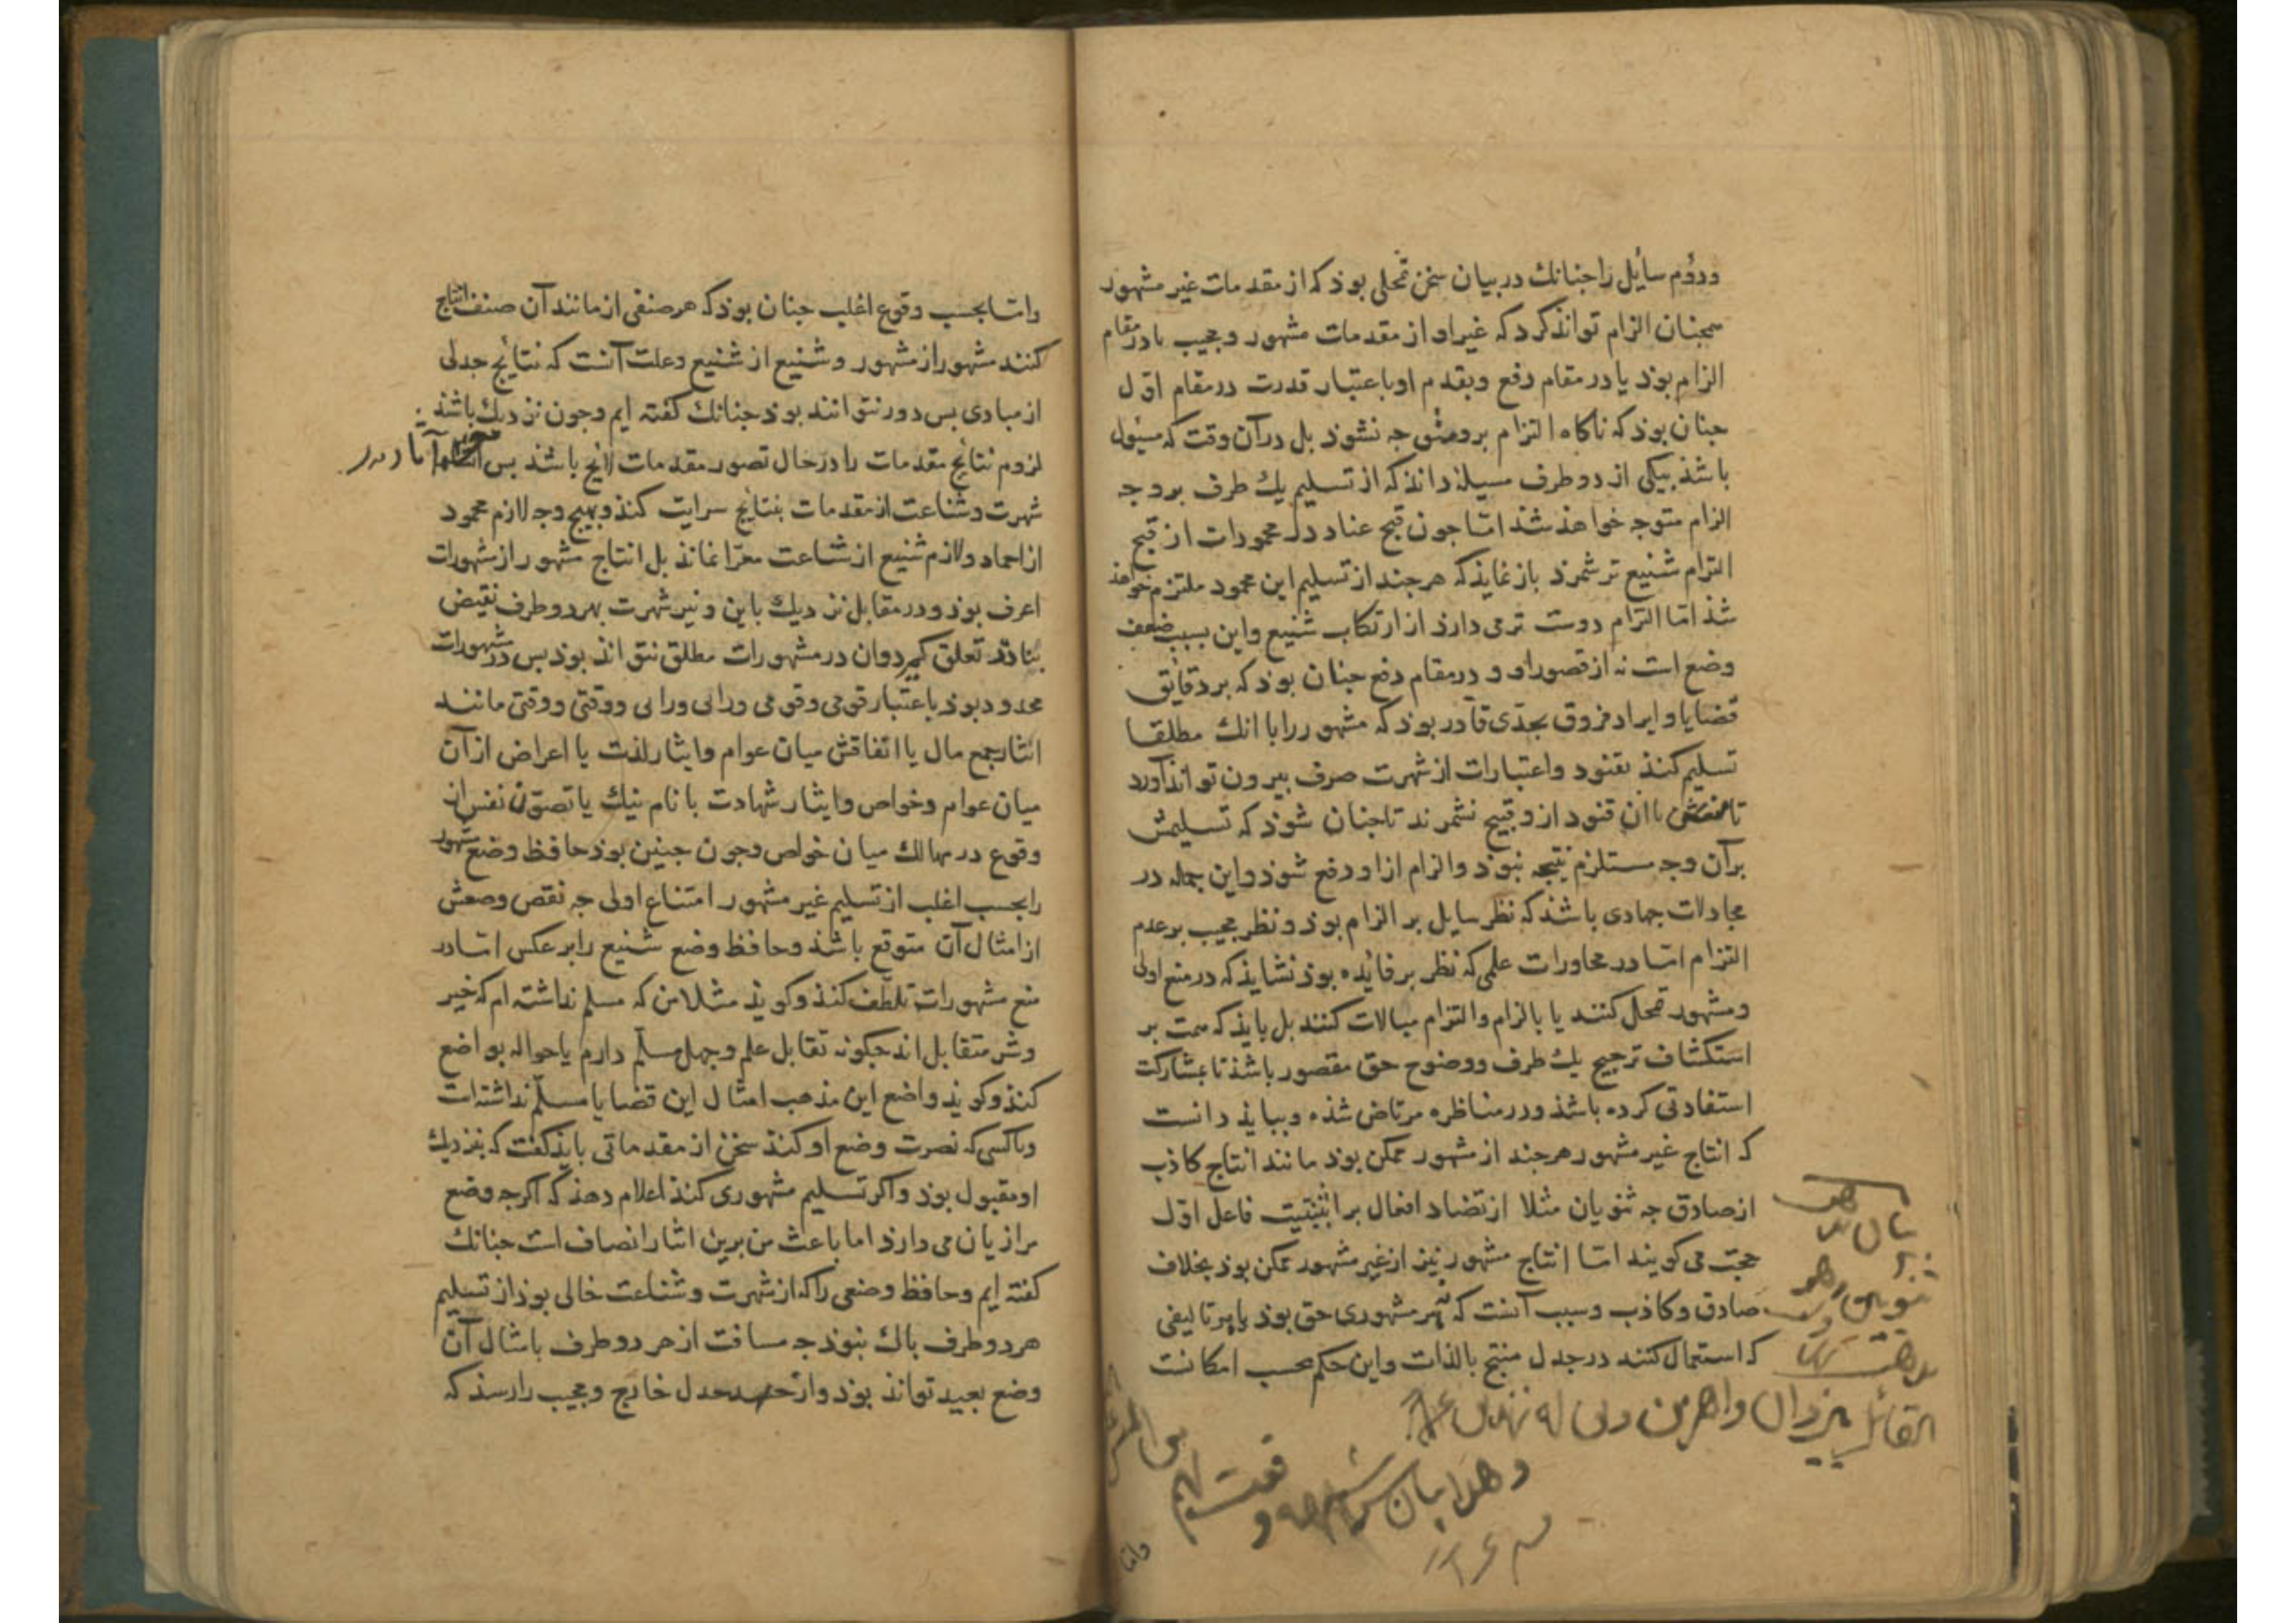 ودوم سایل را جنانك در بیان سخن تمحلی بوذ که از مقدمات غیر مشهور
همجنان الزام تواند کرد که غیر او از مقدمات مشهور و مجیب یا در مقام
الزام بوذ یا در مقام دفع و تقدم او باعتبار قدرت در مقام اول
جنان بوذ که ناکاه التزام برو متوجه نشوذ بل در آن وقت که مسئول
باشذ بیکی از دو طرف مسیله داند که از تسلیم یك طرف برو جه
الزام متوجه خواهذ شد اما جون قبح عناد در محمودات از قبح
التزام شنیع تر شمرذ باز نمایذ که هر جند از تسلیم این محمود ملتزم خواهذ
شذ اما التزام دوست تر می دارذ از ارتکاب شنیع و این بسبب ضعف
وضع است نه از قصور او و در مقام دفع جنان بوذ که بر دقایق
قضایا و ایراد فروق بحدی قادر بوذ که مشهور را با انك مطلقا
تسلیم کنذ بقیود و اعتبارات از شهرت صرف بیرون تواند آورد
تا با ان قیود ازو قبیح نشمرند تا جنان شوذ که تسلیمش
بر آن وجه مستلزم نتیجه نبوذ و الزام ازاو دفع شوذ و این جمله در
مجادلات جهادی باشذ که نظر سایل بر الزام بوذ و نظر مجیب بر عدم
التزام اما در محاورات علمی که نظر بر فائده بوذ نشایذ که در منع اولی
و مشهور تمحل کنند یا بالزام و التزام مبالات کنند بل بایذ که همت بر
استکشاف ترجیح یك طرف و وضوح حق مقصور باشذ تا بمشارکت
استفادتی کرده باشذ و در مناظره مرتاض شذه و ببایذ دانست
که انتاج غیر مشهور هر جند از مشهور ممکن بوذ مانند انتاج کاذب
از صادق جه ثنویان مثلا از تضاد افعال بر اثنینیت فاعل اول
حجت می کویند اما انتاج مشهور نیز از غیر مشهور ممکن بوذ بخلاف
صادق و کاذب و سبب آنست که نه هر مشهوری حق بوذ یا هر تالیفی
که استعمال کنند در جدل منتج بالذات و این حکم بحسب امکانست
القائل بیزدان و اهرمن
و هذا بیان
واما
واما بحسب وقوع اغلب جنان بوذ که هر صنفی از مانند آن صنف انتاج
کنند مشهور از مشهور و شنیع از شنیع و علت آنست که نتایج جدلی
از مبادی بس دور نتوانند بوذ جنانك کفته ایم و جون نزدیك باشند
لزوم نتایج مقدمات را در حال تصور مقدمات لایح باشذ بس
شهرت و شناعت از مقدمات بنتایج سرایت کنذ و بهیج وجه لازم محمود
از احماد و لازم شنیع از شناعت معرا نماند بل انتاج مشهور از مشهورات
اعرف بوذ و در مقابل نزدیك باین و نیز شهرت بهر دو طرف نقیض
بنادر تعلق کیرد و ان در مشهورات مطلق نتواند بوذ بس در مشهورات
محدود بوذ باعتبار قومی و قومی و رایی و رایی و وقتی و وقتی مانند
ایثار جمع مال یا انفاقش میان عوام و ایثار لذت یا اعراض از آن
میان عوام و خواص و ایثار شهادت با نام نیك یا تصون نفس از
وقوع در مهالك میان خواص و جون جنین بوذ حافظ وضع مشهور
را بحسب اغلب از تسلیم غیر مشهور امتناع اولی جه نقص وضعش
از امثال آن متوقع باشذ و حافظ وضع شنیع را بر عکس اما در
منع مشهورات تلطف کنذ و کویذ مثلا من که مسلم نداشته ام که خیر
و شر متقابل اند جکونه تقابل علم و جهل مسلم دارم یا حواله بواضع
کنذ و کویذ واضع این مذهب امثال این قضایا مسلم نداشته است
و با کسی که نصرت وضع او کند سخن از مقدماتی بایذ کفت که بنزدیك
او مقبول بوذ و اکر تسلیم مشهوری کنذ اعلام دهذ که اکرجه وضع
مرا زیان می دارذ اما باعث من برین ایثار انصاف است جنانك
کفته ایم و حافظ وضعی را که از شهرت و شناعت خالی بوذ از تسلیم
هر دو طرف باك نبوذ جه مسافت از هر دو طرف با مثال آن
وضع بعید تواند بوذ و از حد جدل خارج و مجیب را رسذ که